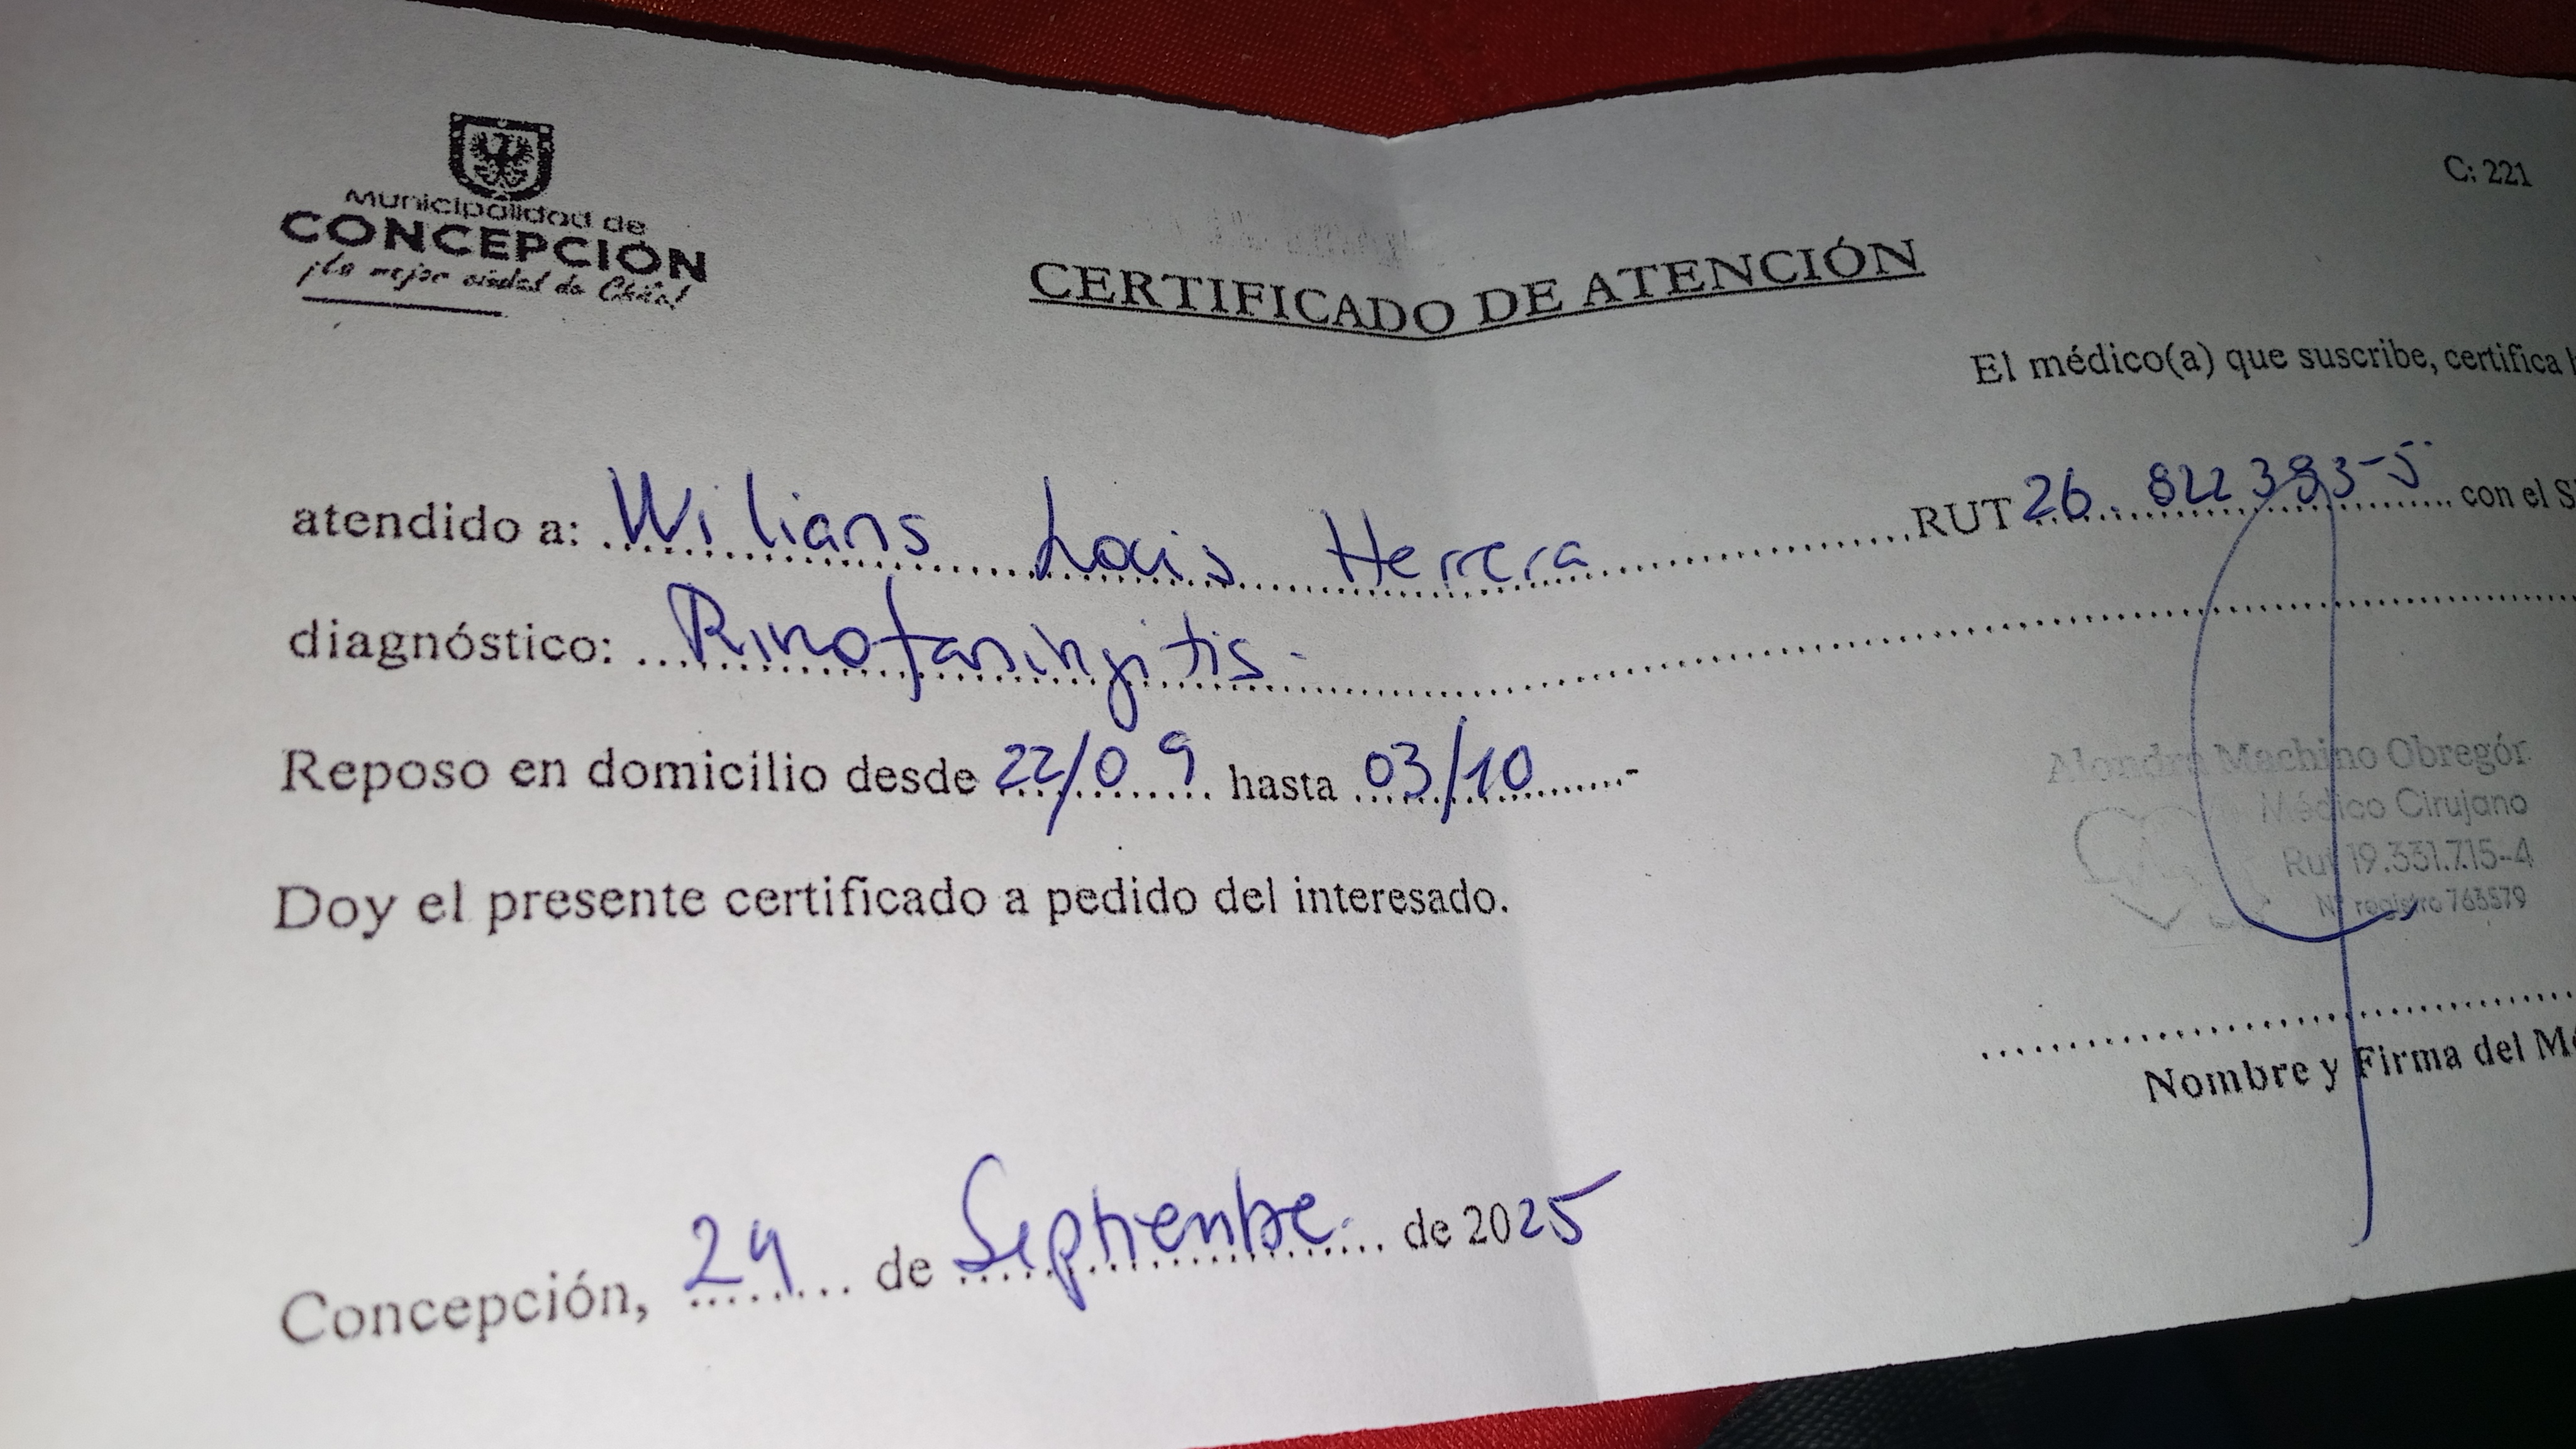 Municipalidad de
CONCEPCIÓN
¡La mejor ciudad de Chile!
C: 221
CERTIFICADO DE ATENCIÓN
El médico(a) que suscribe, certifica h
atendido a: Wilians Louis Herrera RUT 26.822393-5 con el S
diagnóstico: Rinofaringitis.
Reposo en domicilio desde 22/09 hasta 03/10.-
Doy el presente certificado a pedido del interesado.
Machino Obregón
Médico Cirujano
Rut 19.331.715-4
N° registro 763579
Nombre y Firma del Mé
Concepción, 24 de Septiembre de 2025